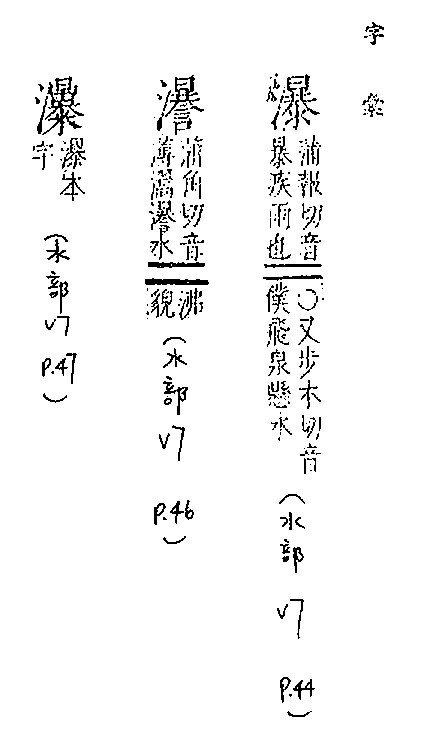 字彙
瀑
蒲報切音
暴疾雨也
○又步木切音
僕飛泉懸水
(水部 V7 P.44)
蒲角切音
薄灂水
沸
貌
(水部 V7 P.46)
瀑本
字
(水部 V7 P.47)